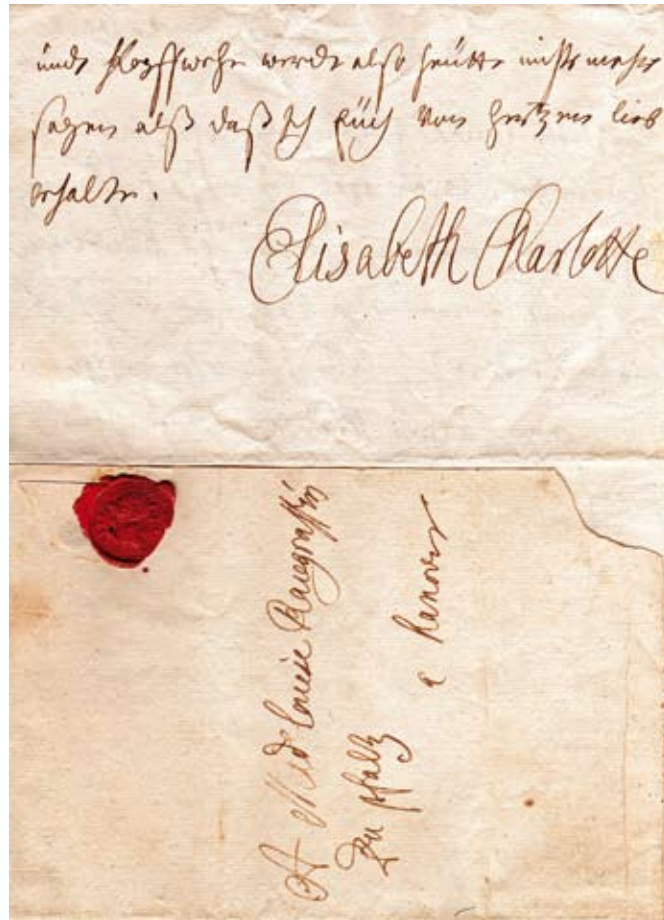 undt Kopffwehe werde also heütte nichts mehr
sagen alß daß Ich Eüch von hertzen lieb
behalte.
Elisabeth Charlotte
A Mad Louise Raugraffin
Zu pfaltz
a hanover